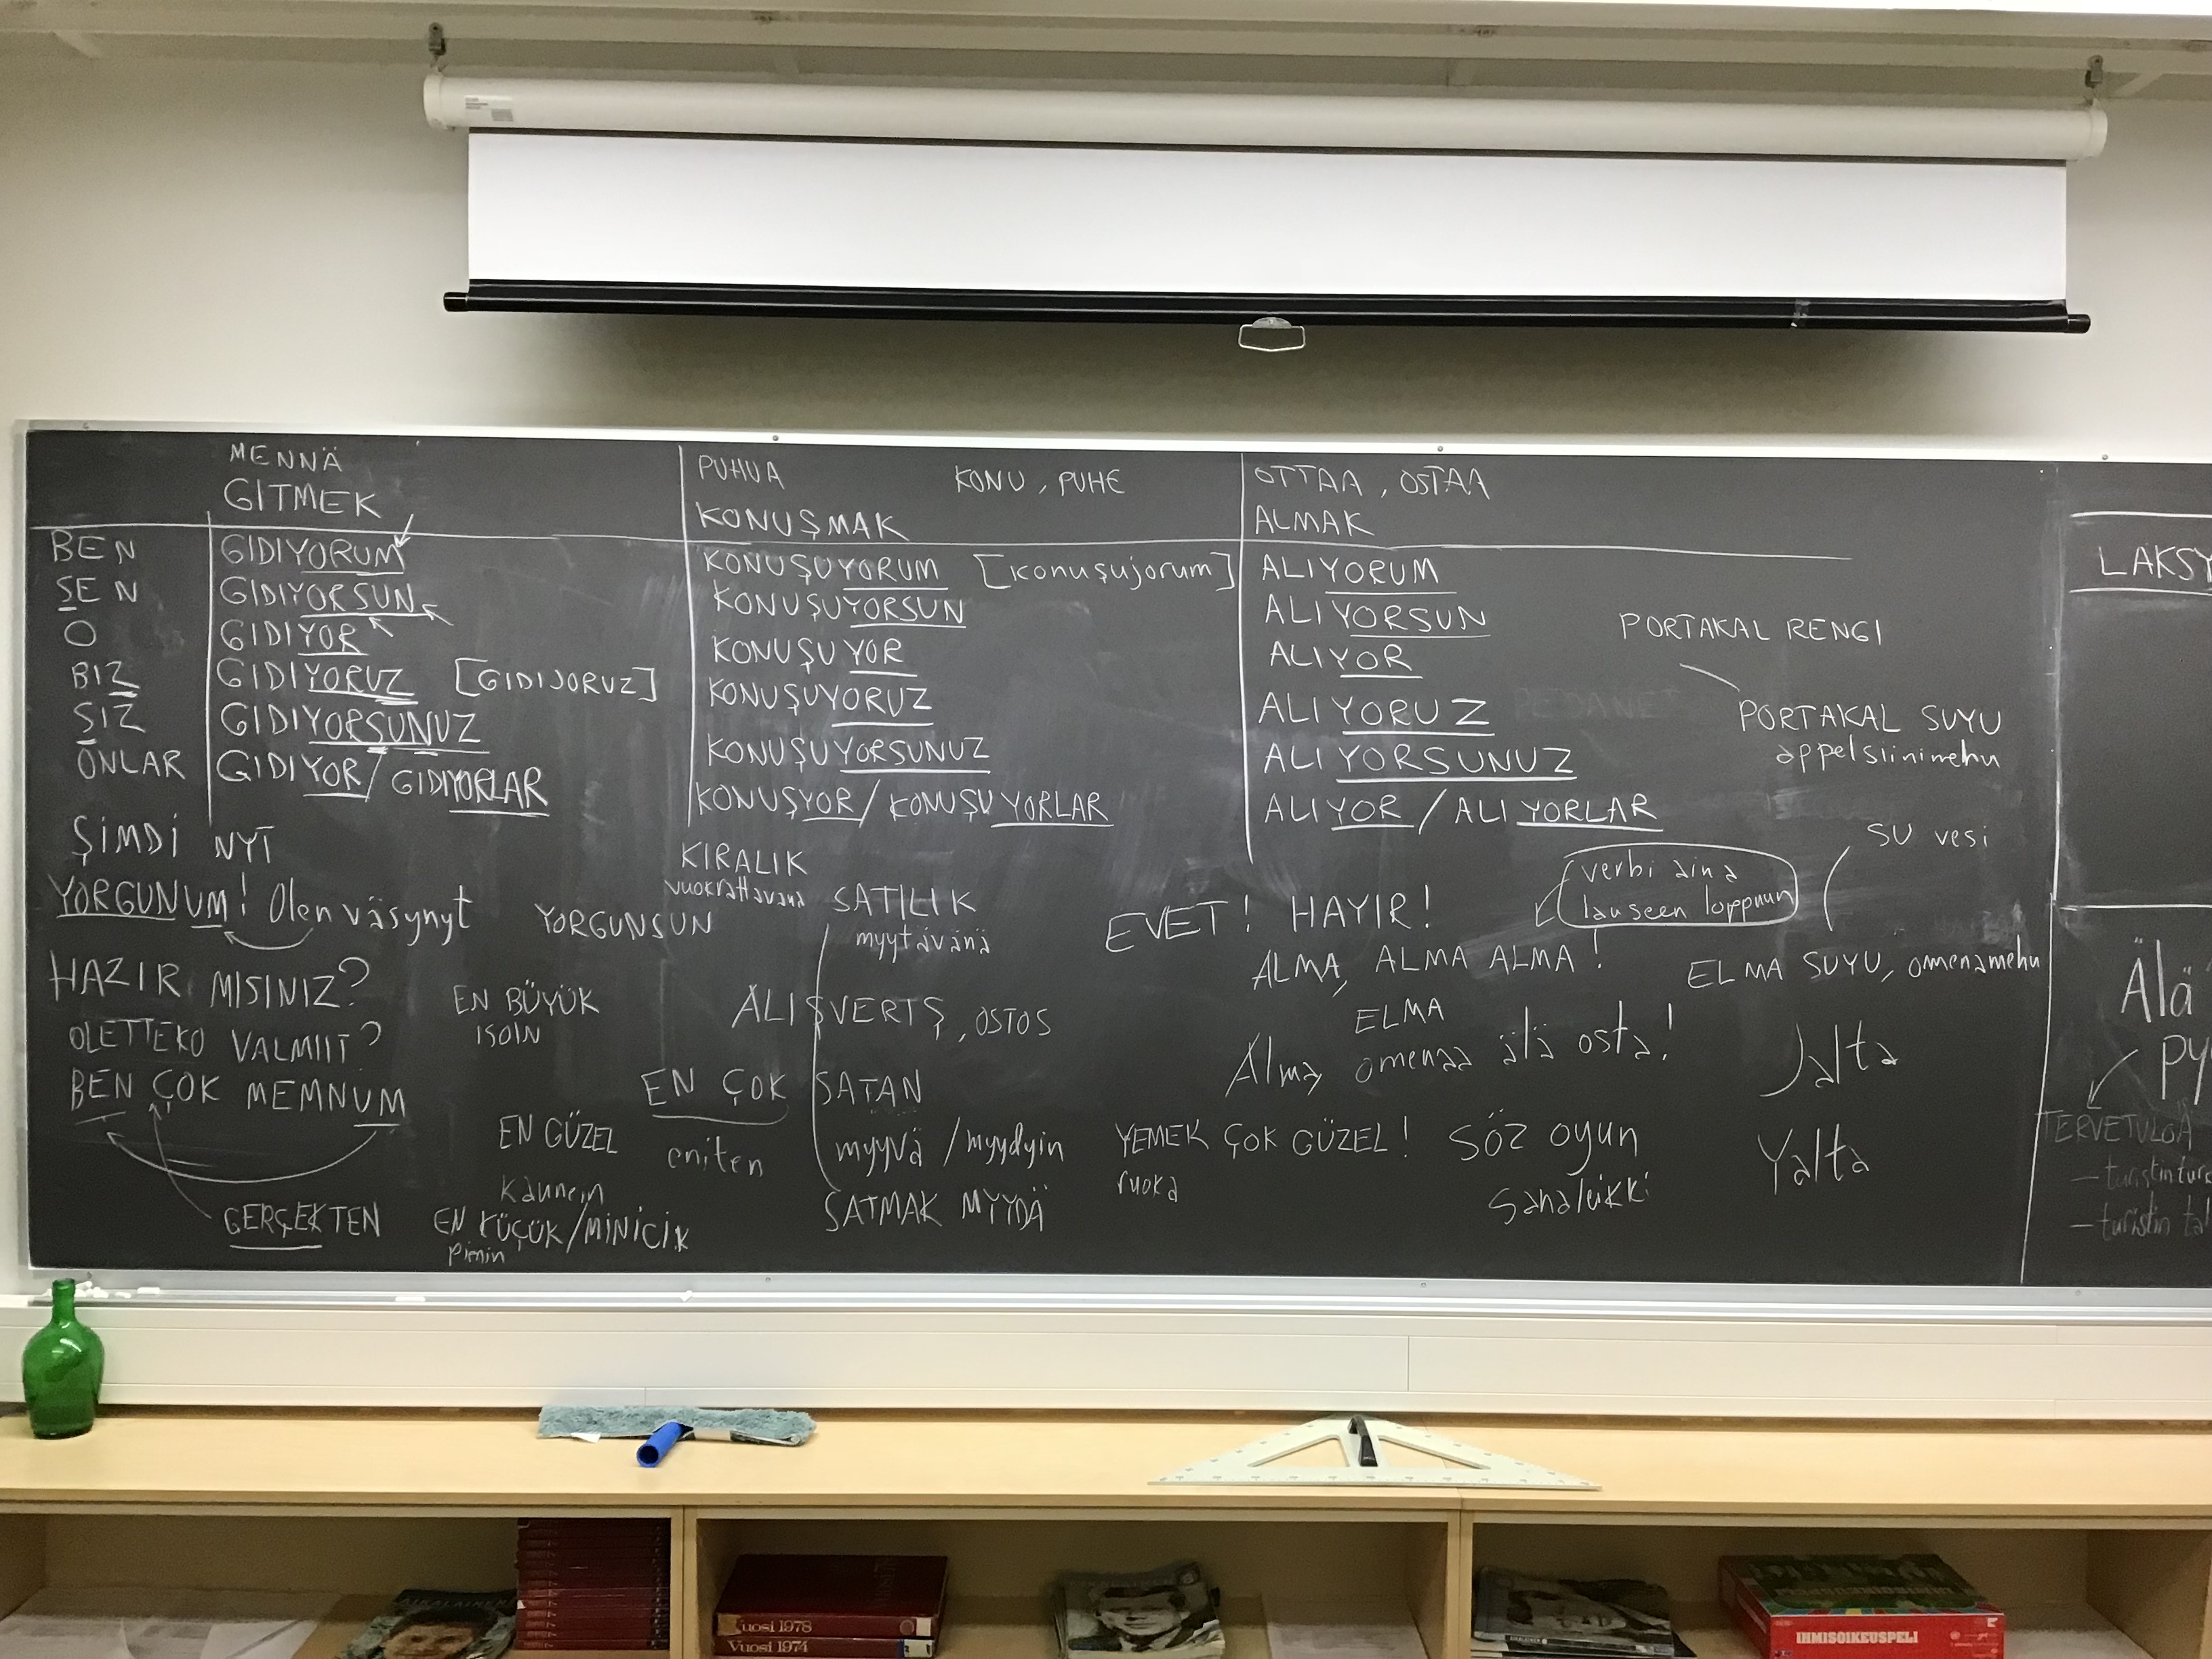 MENNÄ
GITMEK
BEN GIDIYORUM
SEN GIDIYORSUN
O GIDIYOR
BIZ GIDIYORUZ [GIDIJORUZ]
SIZ GIDIYORSUNUZ
ONLAR GIDIYOR/GIDIYORLAR
PUHUA KONU, PUHE
KONUŞMAK
KONUŞUYORUM [konuşujorum]
KONUŞUYORSUN
KONUŞUYOR
KONUŞUYORUZ
KONUŞUYORSUNUZ
KONUŞYOR/KONUŞUYORLAR
OTTAA, OSTAA
ALMAK
ALIYORUM
ALIYORSUN
ALIYOR
ALIYORUZ
ALIYORSUNUZ
ALIYOR/ALIYORLAR
PORTAKAL RENGI
PORTAKAL SUYU
appelsiinimehu
SU vesi
ELMA SUYU, omenamehu
ŞİMDİ NYT
YORGUNUM! Olen väsynyt YORGUNSUN
HAZIR MISINIZ?
OLETTEKO VALMIIT?
BEN ÇOK MEMNUM
GERÇEKTEN
EN BÜYÜK
ISOIN
EN GÜZEL
kaunein
EN KÜÇÜK/MİNİCİK
pienin
KIRALIK
vuokrattavana
SATILIK
myytävänä
ALIŞVERTŞ, OSTOS
EN ÇOK
eniten
SATAN
myyvä/myydyin
SATMAK MYYDÄ
EVET! HAYIR!
verbi aina
lauseen loppuun
ALMA, ALMA ALMA!
ELMA
Alma, omenaa älä osta!
YEMEK ÇOK GÜZEL!
ruoka
SÖZ oyun
Sanaleikki
Jalta
Yalta
LAKSY
Älä
PY
TERVETULOA
- turistin
- turistin
AIKALAINEN
Vuosi 1978
Vuosi 1974
IHMISOIKEUSPELI